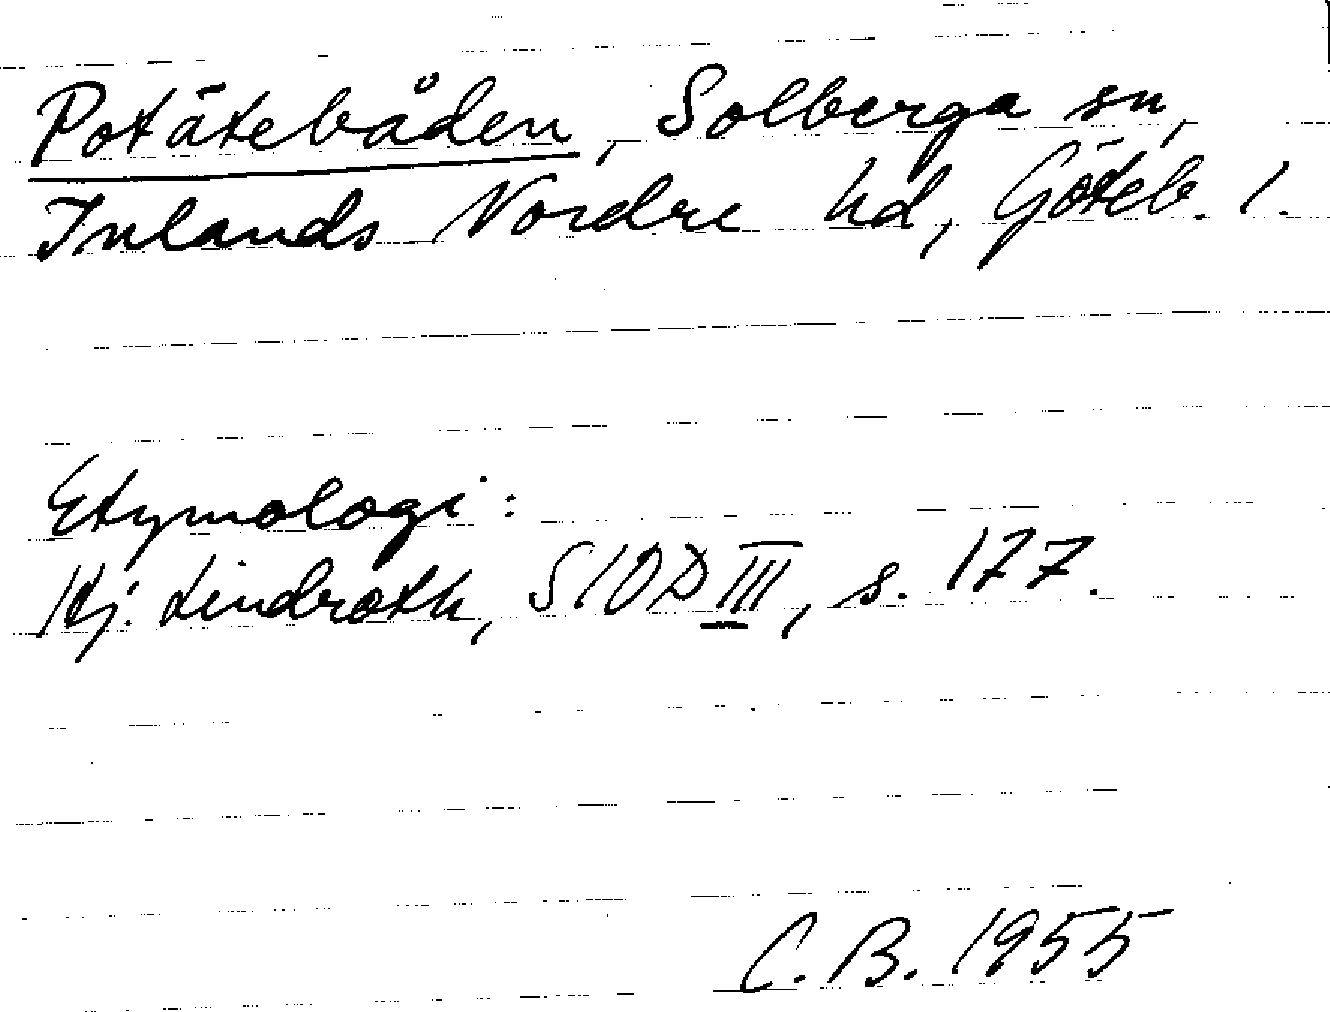 Potätebåden, Solberga sn,
Inlands Nordre hd, Göteb. l.
Etymologi:
Hj. Lindroth, SIOD III, s. 177.
C. B. 1955